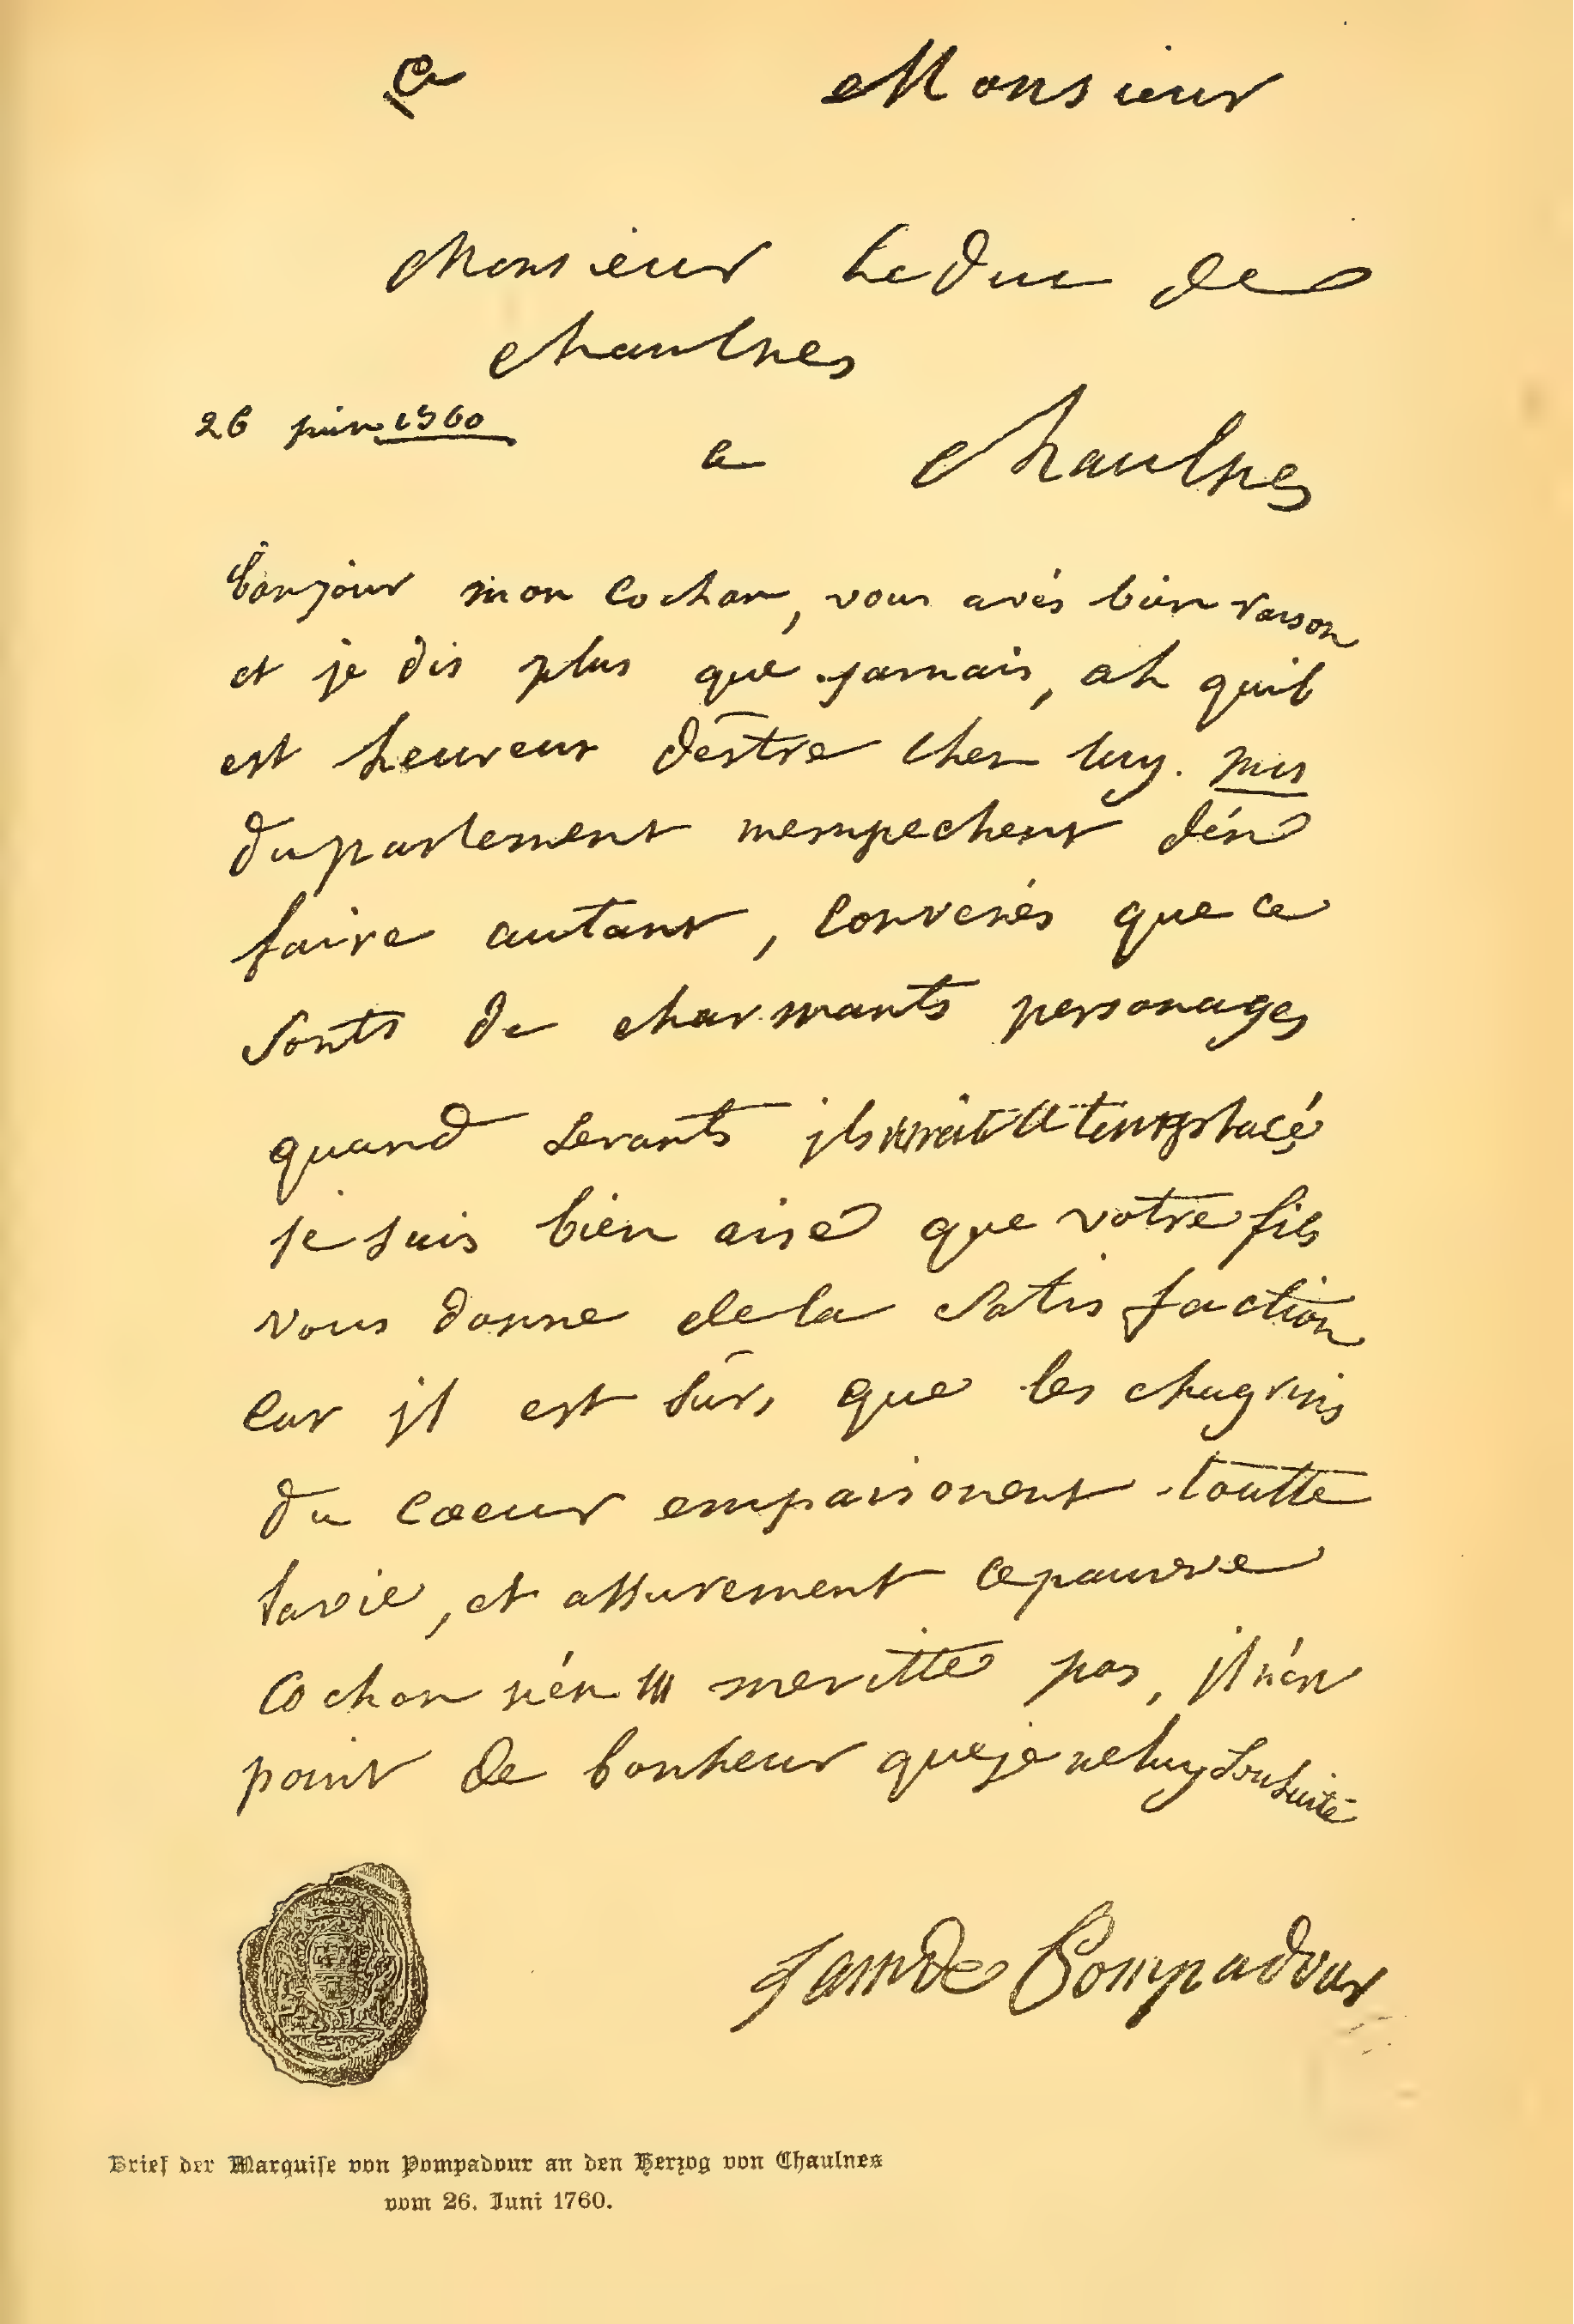 a Monsieur
Monsieur Le Duc de
chaulnes
26 juin 1760
a chaulnes
bonjour mon cochon, vous avés bien raison
et je dis plus que jamais, ah quil
est heureux déstre chez luy. mrs
du parlement mempechent dén
faire autant, convenés que ce
sonts de charmants personages
quand Levants ils
je suis bien aise que votre fils
vous donne de la satisfaction
car il est sûr, que les chagrins
du coeur empoisonent toutte
la vie, et assurement ce pauvre
cochon nén meritte pas, il nén
point de bonheur que je ne luy souhaite
de Pompadour
Brief der Marquise von Pompadour an den Herzog von Chaulnes
vom 26. Juni 1760.